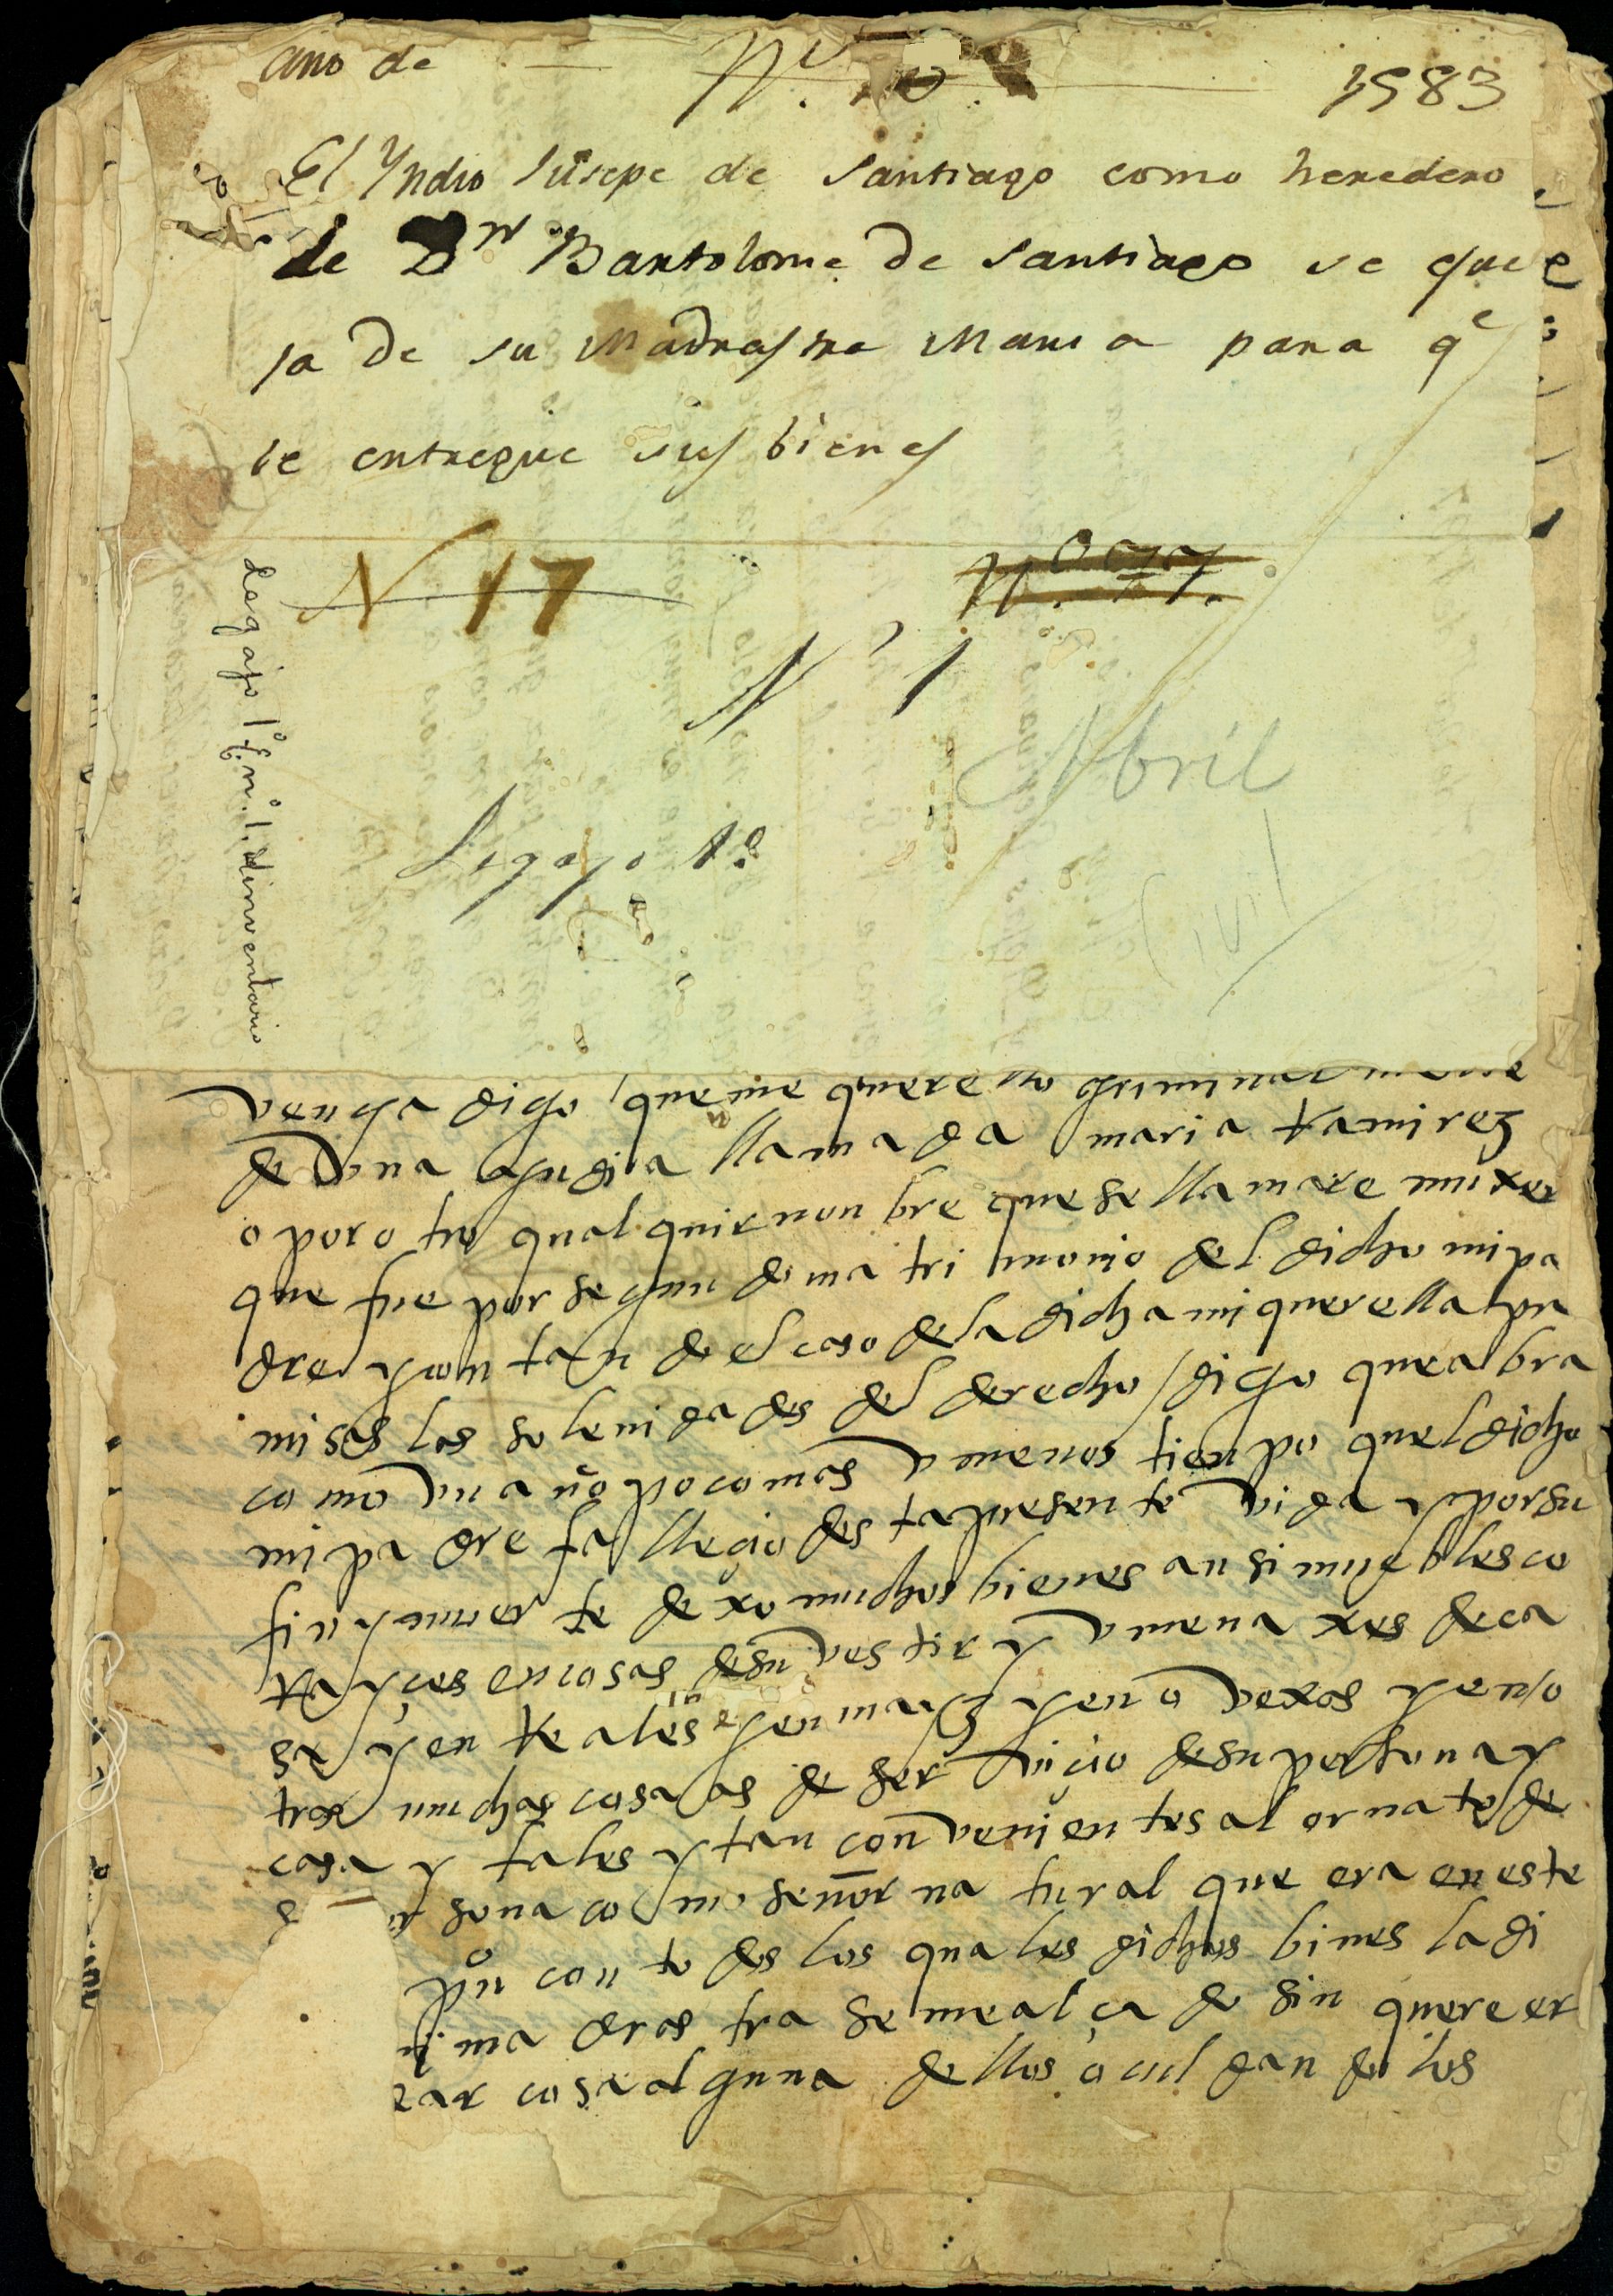 año de
Nº
1583
El Yndio Jusepe de Santiago como heredero
de Dn Bartolome de Santiago se que
ja de su Madrastra Maria para qe
le entregue sus bienes
N 17
N 1
Abril
Legajo 1º
Civil
legajo 1º En nº 1. dinventario
venga digo que me querello criminalmente
de una yndia llamada maria Ramirez
o por otro qualquir nonbre que se llamare muxer
que fue por segundo matrimonio del dicho mi pa
dre y contando el caso de la dicha mi querella pre
misas las solenidades del derecho / digo que abra
como un año poco mas u menos tienpo quel dicho
mi padre fallecio desta presente vida y por su
fin y muerte dexo muchos bienes ansi muebles co
rayçes en cosas de su vestir y umenaxes de ca
sa y en reales y en mayz y en ovexos y en o
tras muchas cosas de serviçio de su persona y
casa y tales y tan convenientes al ornato de
sona como señor natural que era en este
puº con todos los quales dichos bines la di
madrastra se me alçado sin quereer
dar cosa alguna dellos ocultandolos